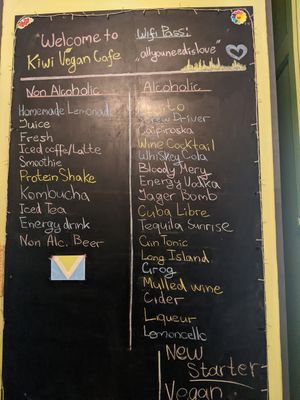 "Welcome to
Kiwi Vegan Cafe
Wifi Pass:
„allyouneedislove"
Non Alcoholic
Homemade Lemonade
Juice
Fresh
Iced coffe/Latte
Smoothie
Protein Shake
Kombucha
Iced Tea
Energy drink
Non Alc. Beer
Alcoholic
Screw Driver
Caipiroska
Wine Cocktail
Whiskey Cola
Bloody Mery
Energy Vodka
Jager Bomb
Cuba Libre
Tequila Sunrise
Gin Tonic
Long Island
Grog
Mulled wine
Cider
Liqueur
Lemoncello
New
Starter
Vegan